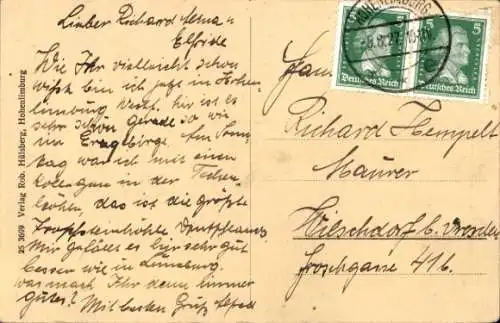 Lieber Richard Erna u
Elfride
Wie Ihr vielleicht schon
wißt bin ich jetzt in Hohen
limburg Westf. hir ist es
sehr schön gerade so wie
im Erzgebirge. Am Sonn
tag war ich mit einen
Kollegen in der
höhle, das ist die größte
Tropfsteinhöhle Deutschlands
Mir gefällt es hir sehr gut
besser wie in Lüneburg.
was macht Ihr denn immer
gutes? Mit besten Gruß Alfred
25 3609 Verlag Rob. Hülsberg, Hohenlimburg
HOHENLIMBURG
-5.8.27.
5
Deutsches Reich
Deutsches Reich
Fam
Richard Hempelt
Maurer
b. Dresden
Froschgasse 41b.